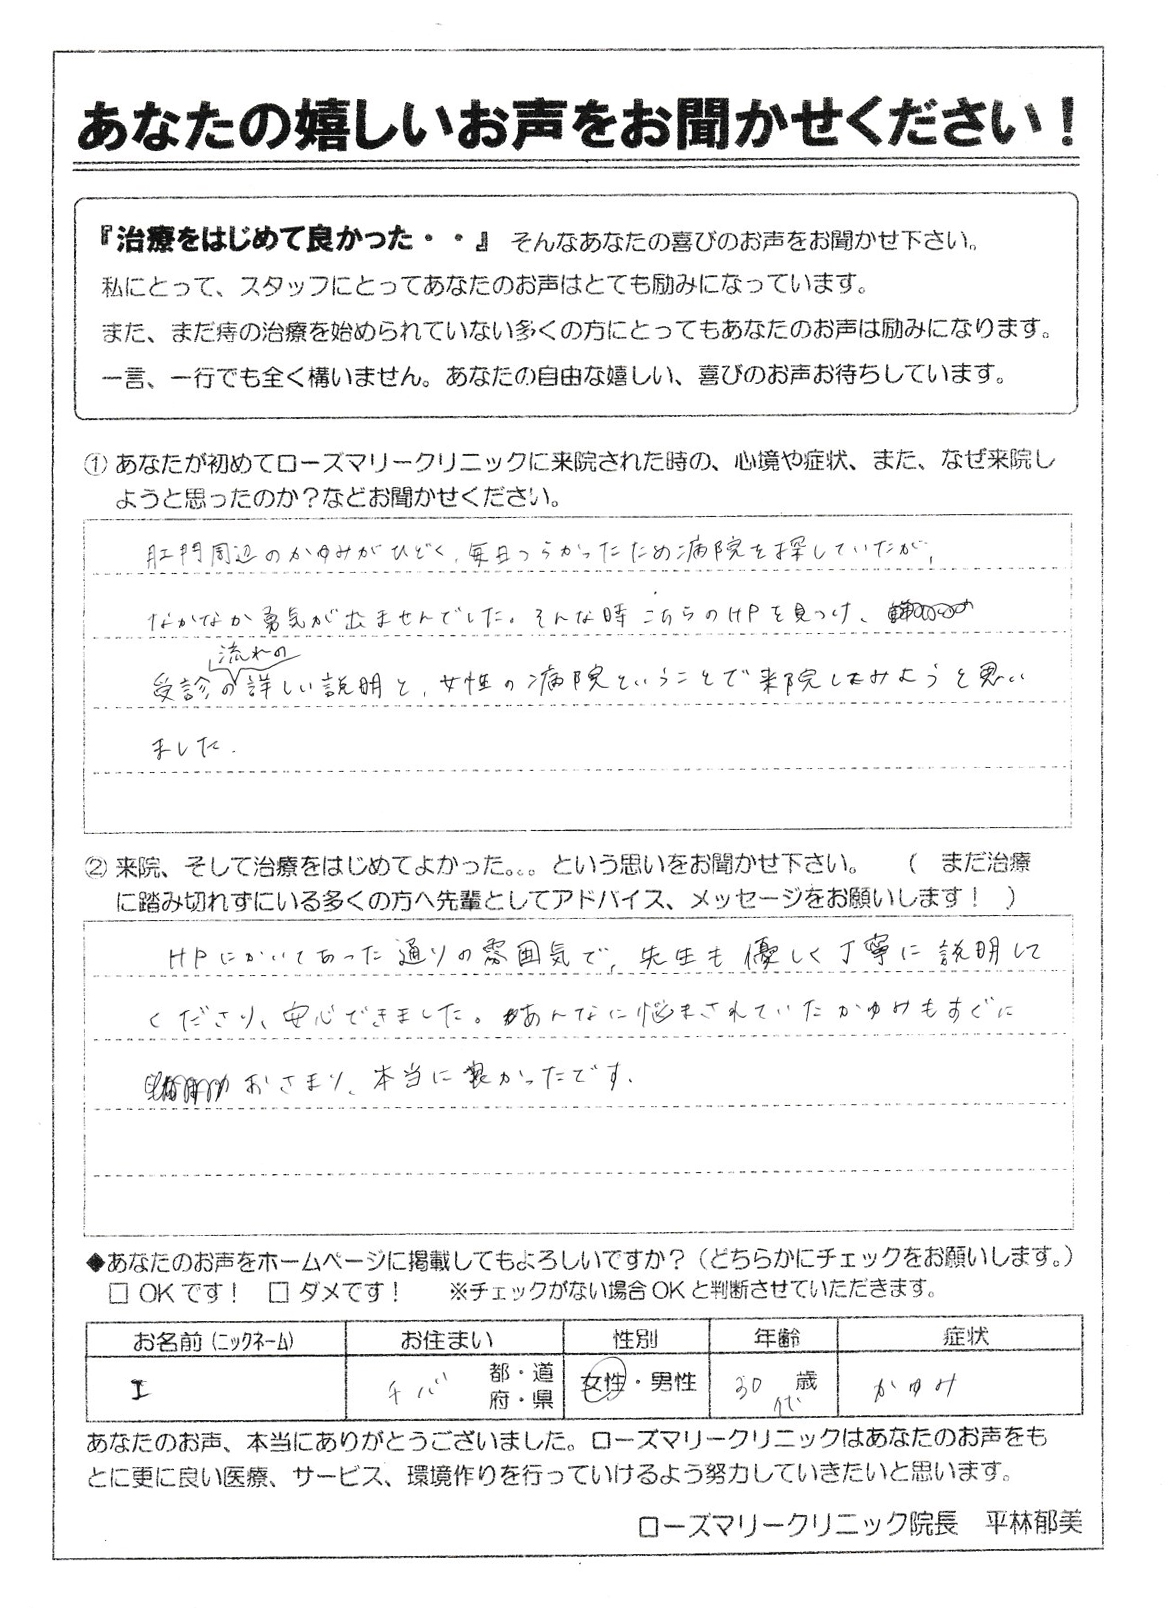 あなたの嬉しいお声をお聞かせください!
『治療をはじめて良かった・・』 そんなあなたの喜びのお声をお聞かせ下さい。
私にとって、スタッフにとってあなたのお声はとても励みになっています。
また、まだ痔の治療を始められていない多くの方にとってもあなたのお声は励みになります。
一言、一行でも全く構いません。あなたの自由な嬉しい、喜びのお声お待ちしています。
① あなたが初めてローズマリークリニックに来院された時の、心境や症状、また、なぜ来院し
ようと思ったのか?などお聞かせください。
肛門周辺のかゆみがひどく、毎日つらかったため病院を探していたが、
なかなか勇気が出ませんでした。そんな時こちらのHPを見つけ、
流れの
受診の詳しい説明と、女性の病院ということで来院してみようと思い
ました。
② 来院、そして治療をはじめてよかった。。。という思いをお聞かせ下さい。 ( まだ治療
に踏み切れずにいる多くの方へ先輩としてアドバイス、メッセージをお願いします! )
HPにかいてあった通りの雰囲気で、先生も優しく丁寧に説明して
くださり、安心できました。あんなに悩まされていたかゆみもすぐに
おさまり、本当に良かったです。
◆あなたのお声をホームページに掲載してもよろしいですか?(どちらかにチェックをお願いします。)
□ OKです! □ ダメです! ※チェックがない場合OKと判断させていただきます。
お名前(ニックネーム) お住まい 性別 年齢 症状
I チバ 都・道 府・県 女性・男性 30 歳 代 かゆみ
あなたのお声、本当にありがとうございました。ローズマリークリニックはあなたのお声をも
とに更に良い医療、サービス、環境作りを行っていけるよう努力していきたいと思います。
ローズマリークリニック院長 平林郁美